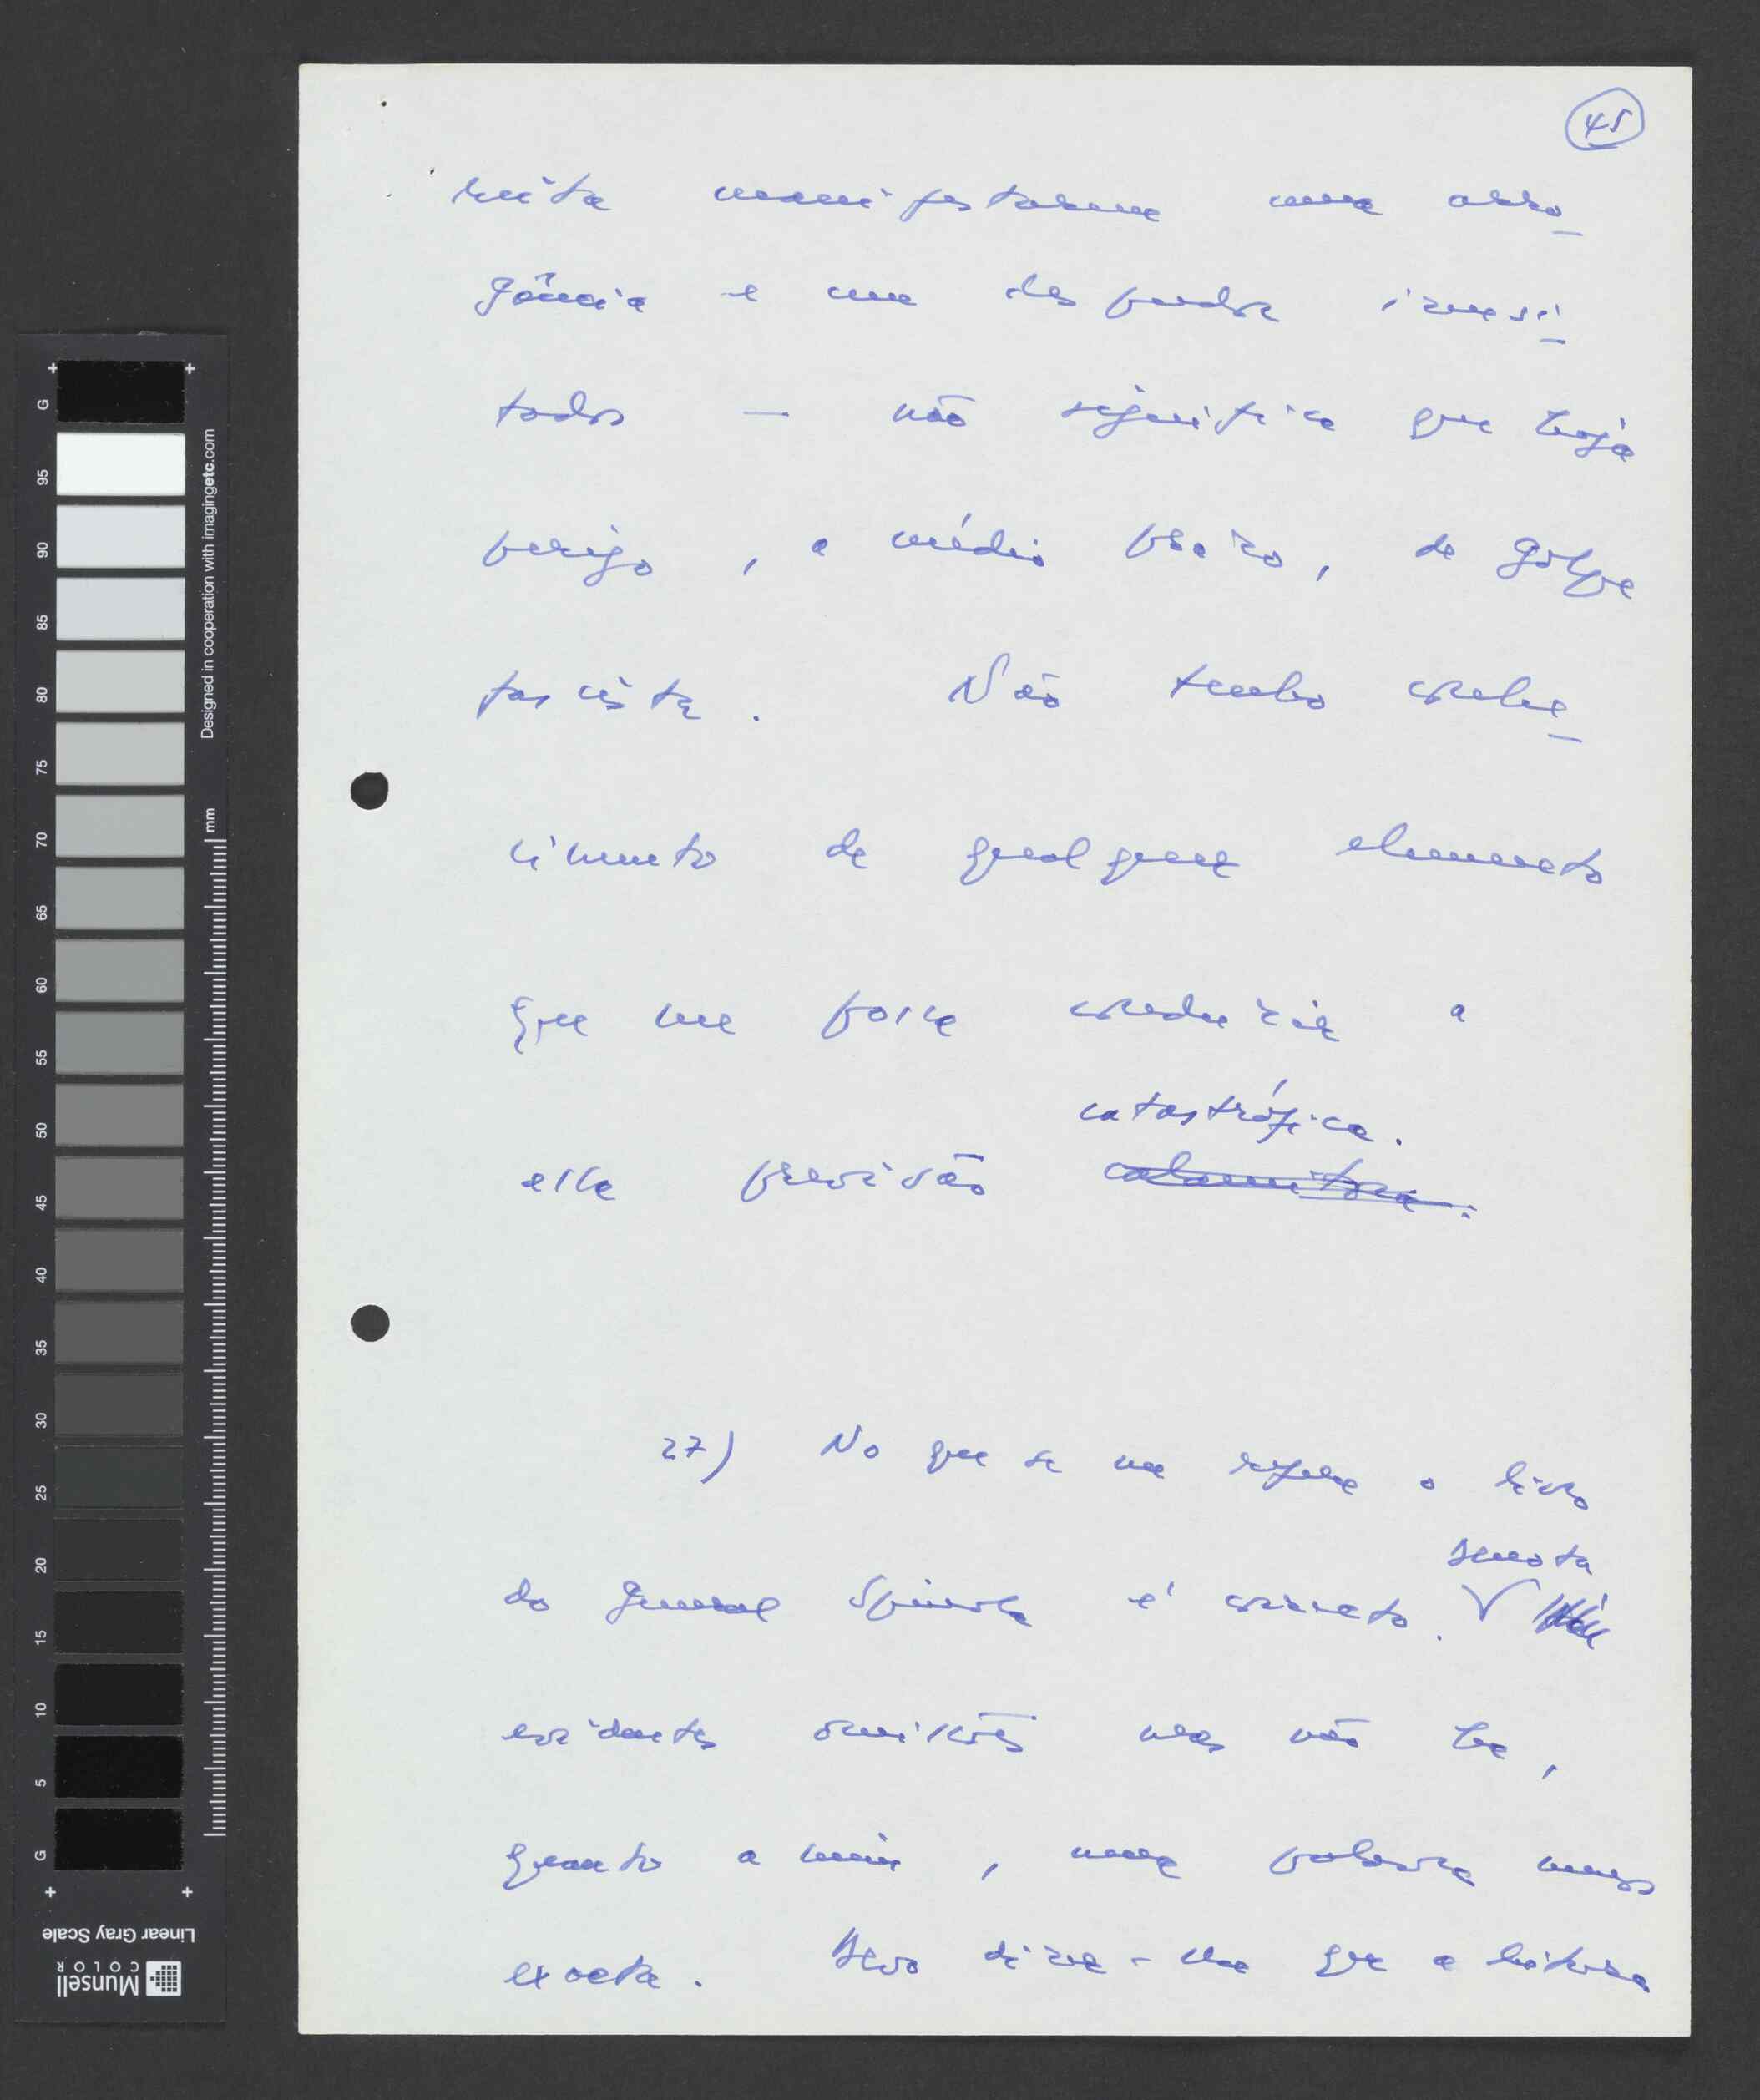 45
reita manifestarem uma arro
gância e um despudor inusi
tados — não significa que haja
perigo, a médio prazo, de golpe
fascista. Não tenho conhe
cimento de qualquer elemento
que me possa conduzir a
catastrófica.
essa previsão
27) No que se me refere o livro
do general Spínola é correcto.
evidentes omissões mas não há,
quanto a mim, uma palavra menos
exacta. Devo dizer-lhe que a leitura
G
95
90
85
80
75
70
65
60
55
50
45
40
35
30
25
20
15
10
5
G
mm
Designed in cooperation with imagingetc.com
Linear Gray Scale
Munsell
COLOR